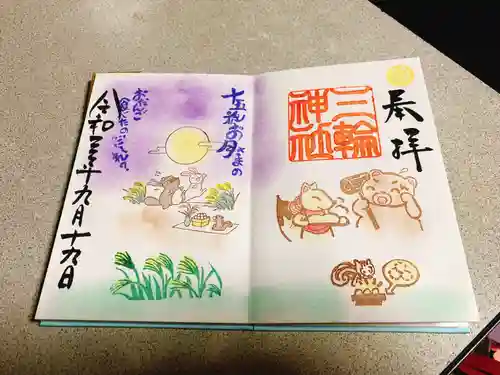 奉拝
三輪
神社
十五夜お月さまの
おだんご
食べたのだぁれ
令和三年九月十九日